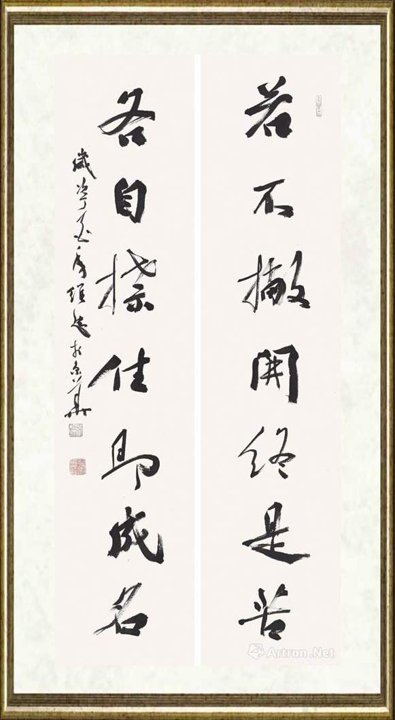 若不撇開終是苦
各自捺住即成名
歲於京華
Artron.Net